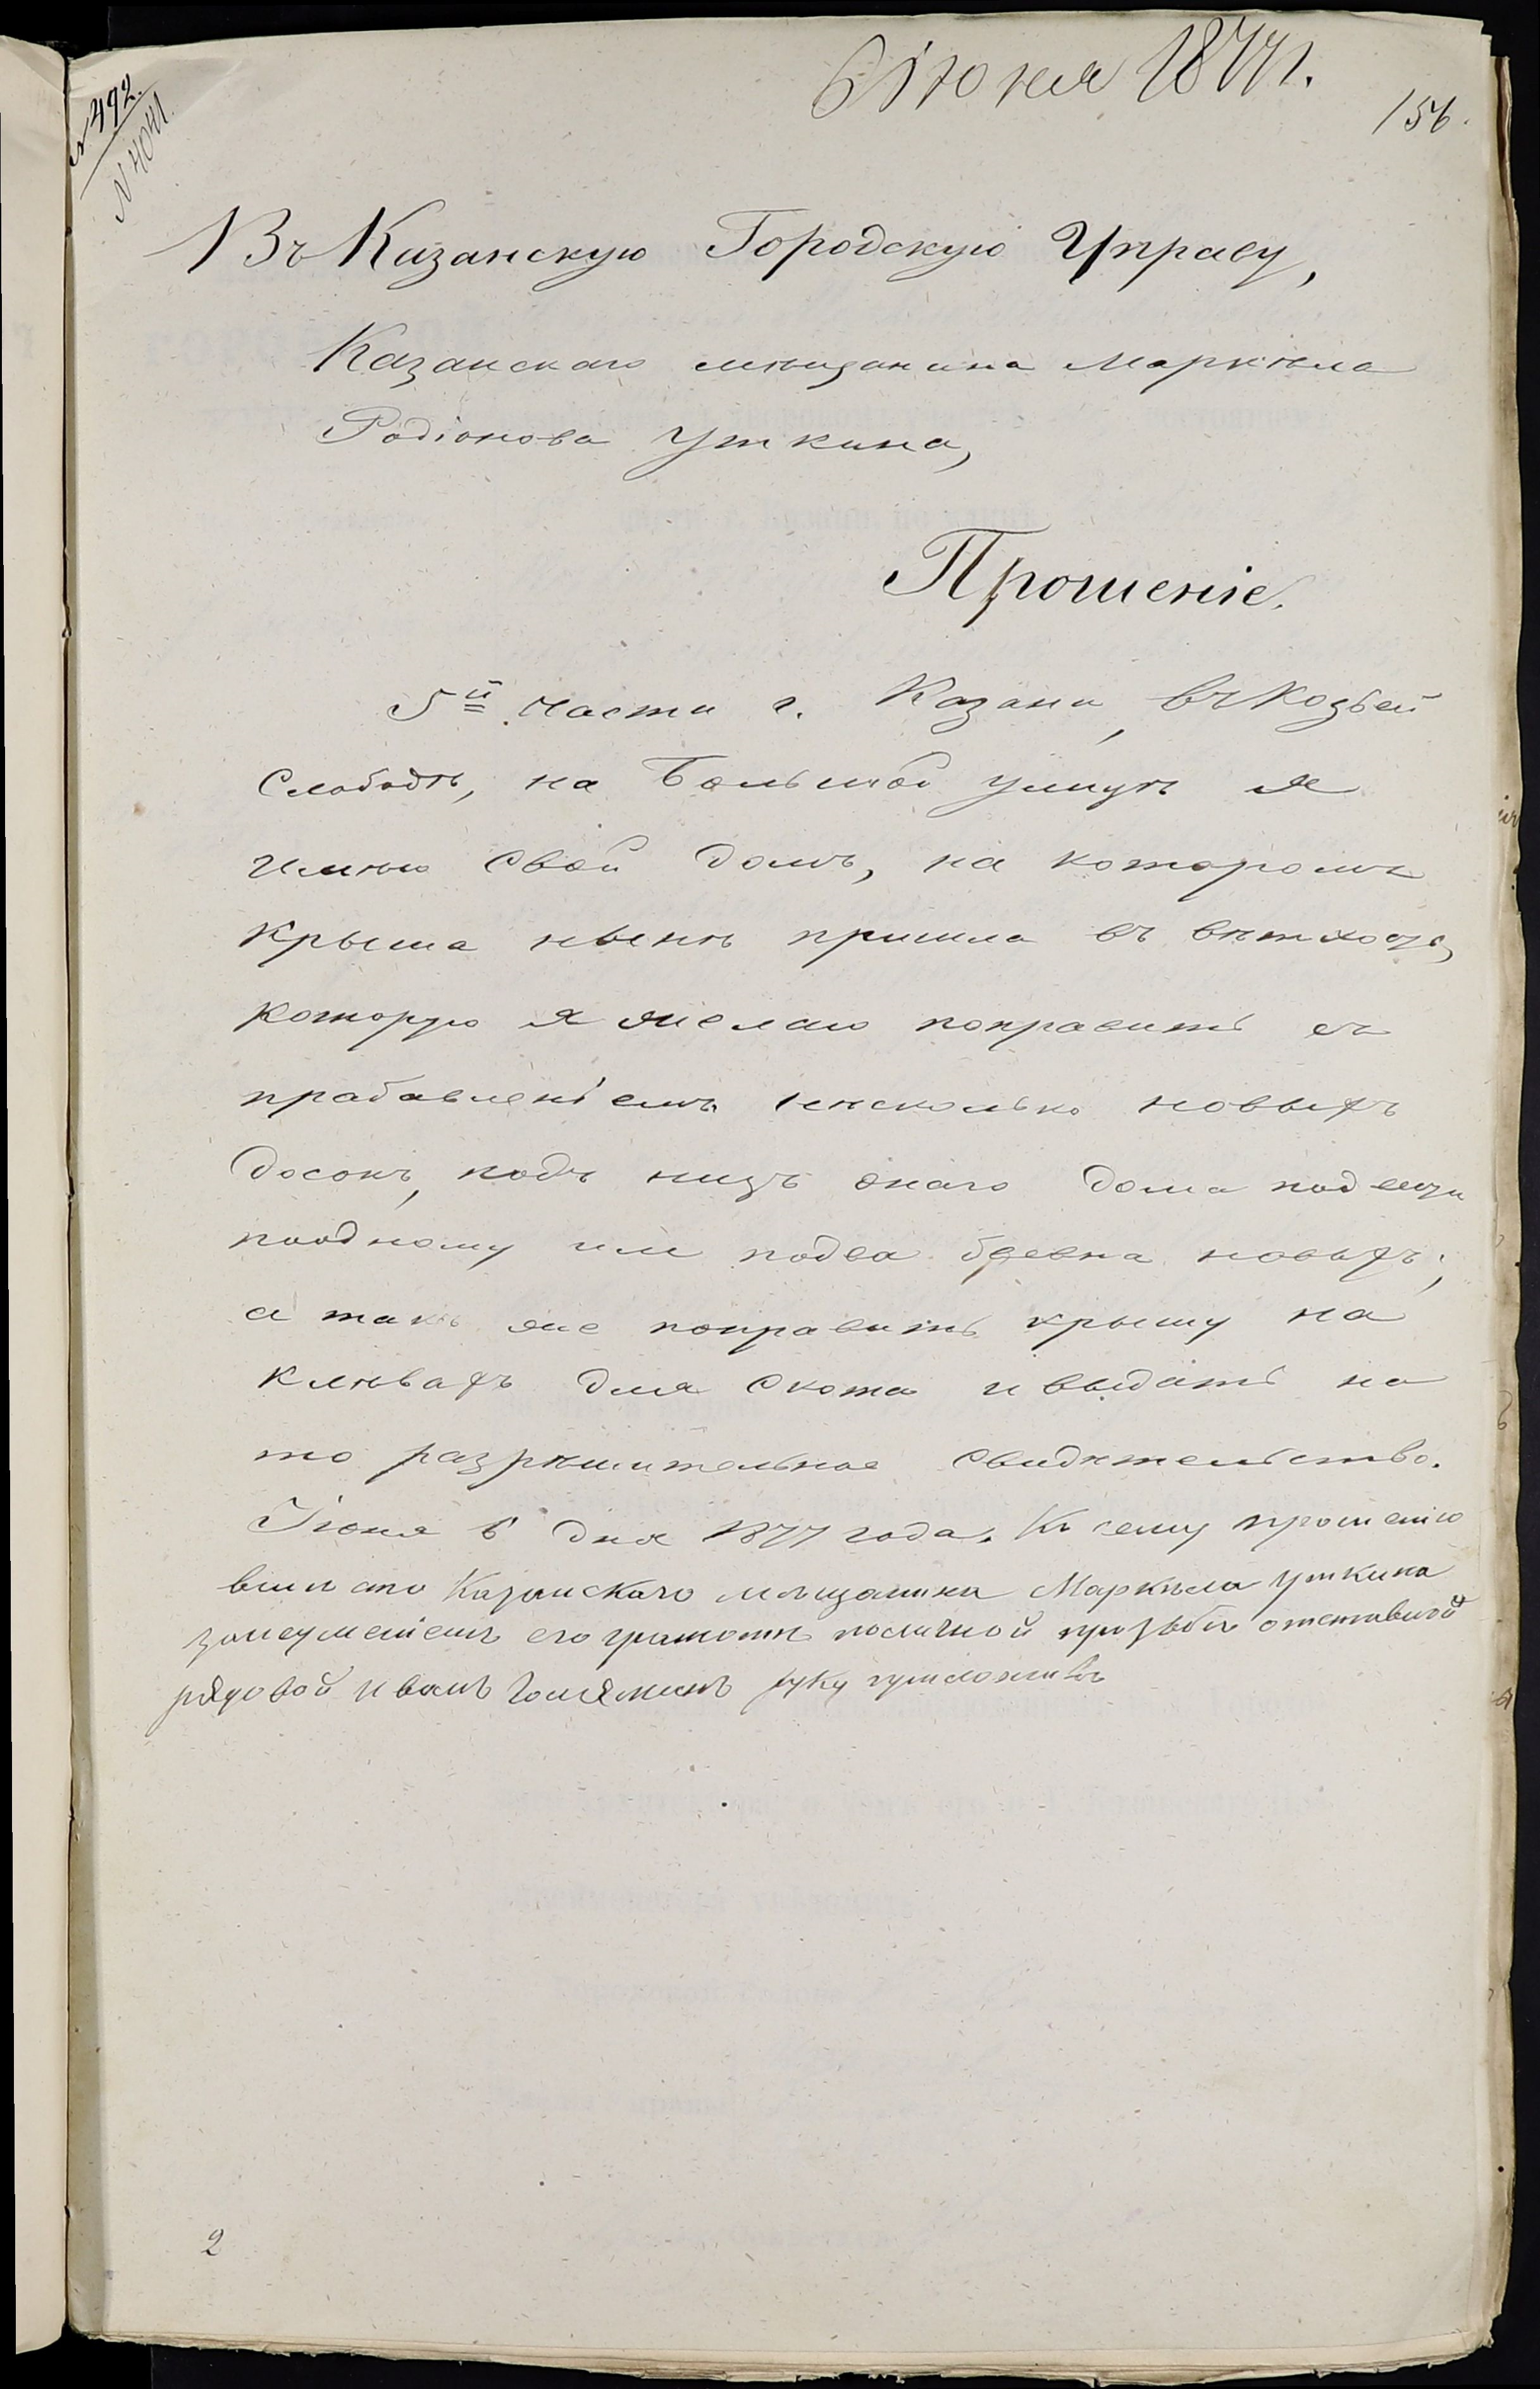 6 Іюня 1877 г.
156.
№ 492.
№ 4041.
Въ Казанскую Городскую Управу,
Казанскаго мѣщанина Маркѣла
Родіонова Уткина,
Прошеніе.
5й части г. Казани, въ Козьей
Слободѣ, на Большой улицѣ я
имѣю свой домъ, на которомъ
крыша нынѣ пришла въ вѣтхость,
которую я желаю поправить съ
прабавленіемъ нѣсколько новыхъ
досокъ, подъ низъ онаго дома подвести
поодному или подва бревна новыхъ;
а такъ же поправить крышу на
клѣвахъ для скота и выдать на
то разрѣшительное свидѣтельство.
Іюня 6 дня 1877 года. Къ сему прошенію
вмѣсто Казанскаго мѣщанина Маркѣла Уткина
занеуменіемъ его грамотѣ поличной прозьбѣ отставной
рядовой Иванъ руку приложилъ
2